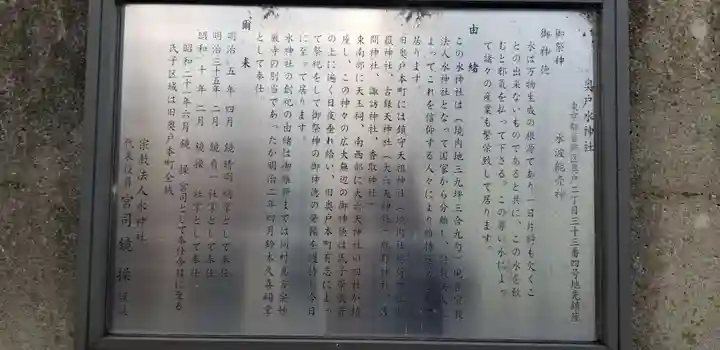 奥戸水神社
東京都葛飾区奥戸二丁目三十三番四号地先鎮座
御祭神　水波能売神
御神徳
水は万物生成の根源であり一日片時も欠くこ
との出来ないものであると共に、この水を飲
むと邪気を払って下さる。この尊い水によっ
て諸々の産業も繁栄致して居ります。
由緒
この水神社は(境内地三九坪三合九勺)
法人水神社となって国家から分離し、
よってこれを信仰する人々により維持
居ります。
旧奥戸本町には鎮守天祖神社(境内社稲荷
嶽神社、古録天神社(大六天神社)熊野神社、
間神社、諏訪神社、香取神社)
東南部に天王祠、南西部に大六天神社の四社が鎮
座し、この神々の広大無辺の御神徳は氏子崇敬者
の上に遍く日夜垂れ給い、旧奥戸本町有志によっ
て祭祀をして御祭神の御神徳の発揚を護持し今日
に至って居ります。
水神社の創祀の由緒は御維新までは同村真言宗妙
厳寺の別当であったが明治二年四月鈴木久喜祠掌
として奉仕。
爾来
明治　五年　四月　鏡　祠掌として奉仕
明治三十五年　二月　鏡　貞一　社掌として奉仕
昭和　十年　二月　鏡　操　社掌として奉仕
昭和二十一年六月　鏡　操　宮司として奉仕今日に至る
氏子区域は旧奥戸本町全域
宗教法人水神社
代表役員　宮司　鏡　操